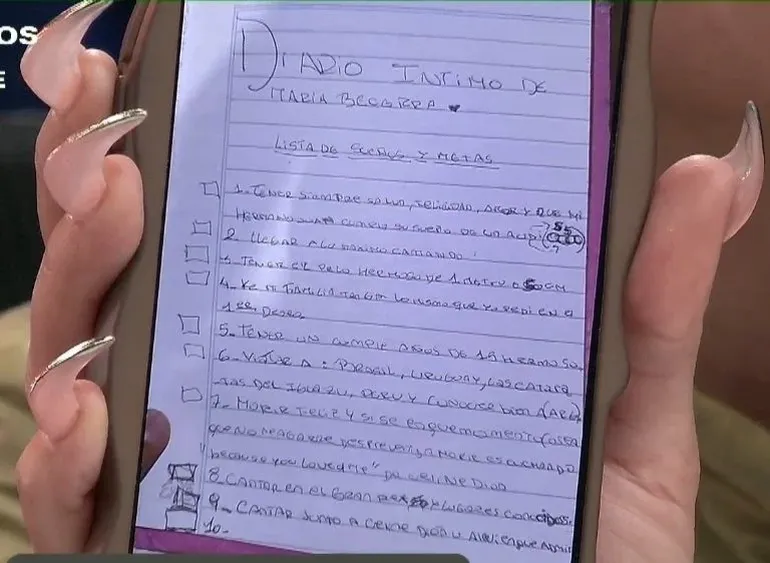 OS
E
DIARIO INTIMO DE
MARIA BECERRA
LISTA DE SUEÑOS Y METAS
1- TENER SIEMPRE SALUD, FELICIDAD, AMOR Y QUE MI
HERMANO CUMPLA SU SUEÑO DE UN AUDI
2. LLEGAR A LO MAXIMO CANTANDO
3. TENER EL PELO HERMOSO DE 1 METRO O 50 CM
4- KE MI FAMILIA TENGA LO MISMO QUE YO PEDI EN EL
1er DESEO
5- TENER UN CUMPLE AÑOS DE 15 HERMOSO
6- VIAJAR A: BRASIL, URUGUAY, LAS CATARA
TAS DEL IGUAZU, PERU Y CONOCER BIEN
7- MORIR FELIZ Y SI SE
QUE NO MORIR ESCUCHANDO
"because you loved me" DE CELINE DION
8. CANTAR EN EL GRAN Y LUGARES CONOCIDOS.
9- CANTAR JUNTO A CELINE DION U ALGUIEN QUE ADMIR
10-